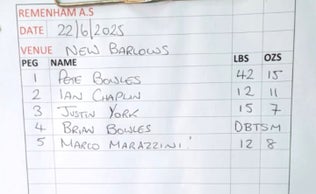 REMENHAM A.S
DATE 22/6/2025
VENUE NEW BARLOWS
PEG NAME LBS OZS
1 PETE BOWLES 42 15
2 IAN CHAPLIN 12 11
3 JUSTIN YORK 15 7
4 BRIAN BOWLES DBTSM
5 MARCO MARAZZINI 12 8